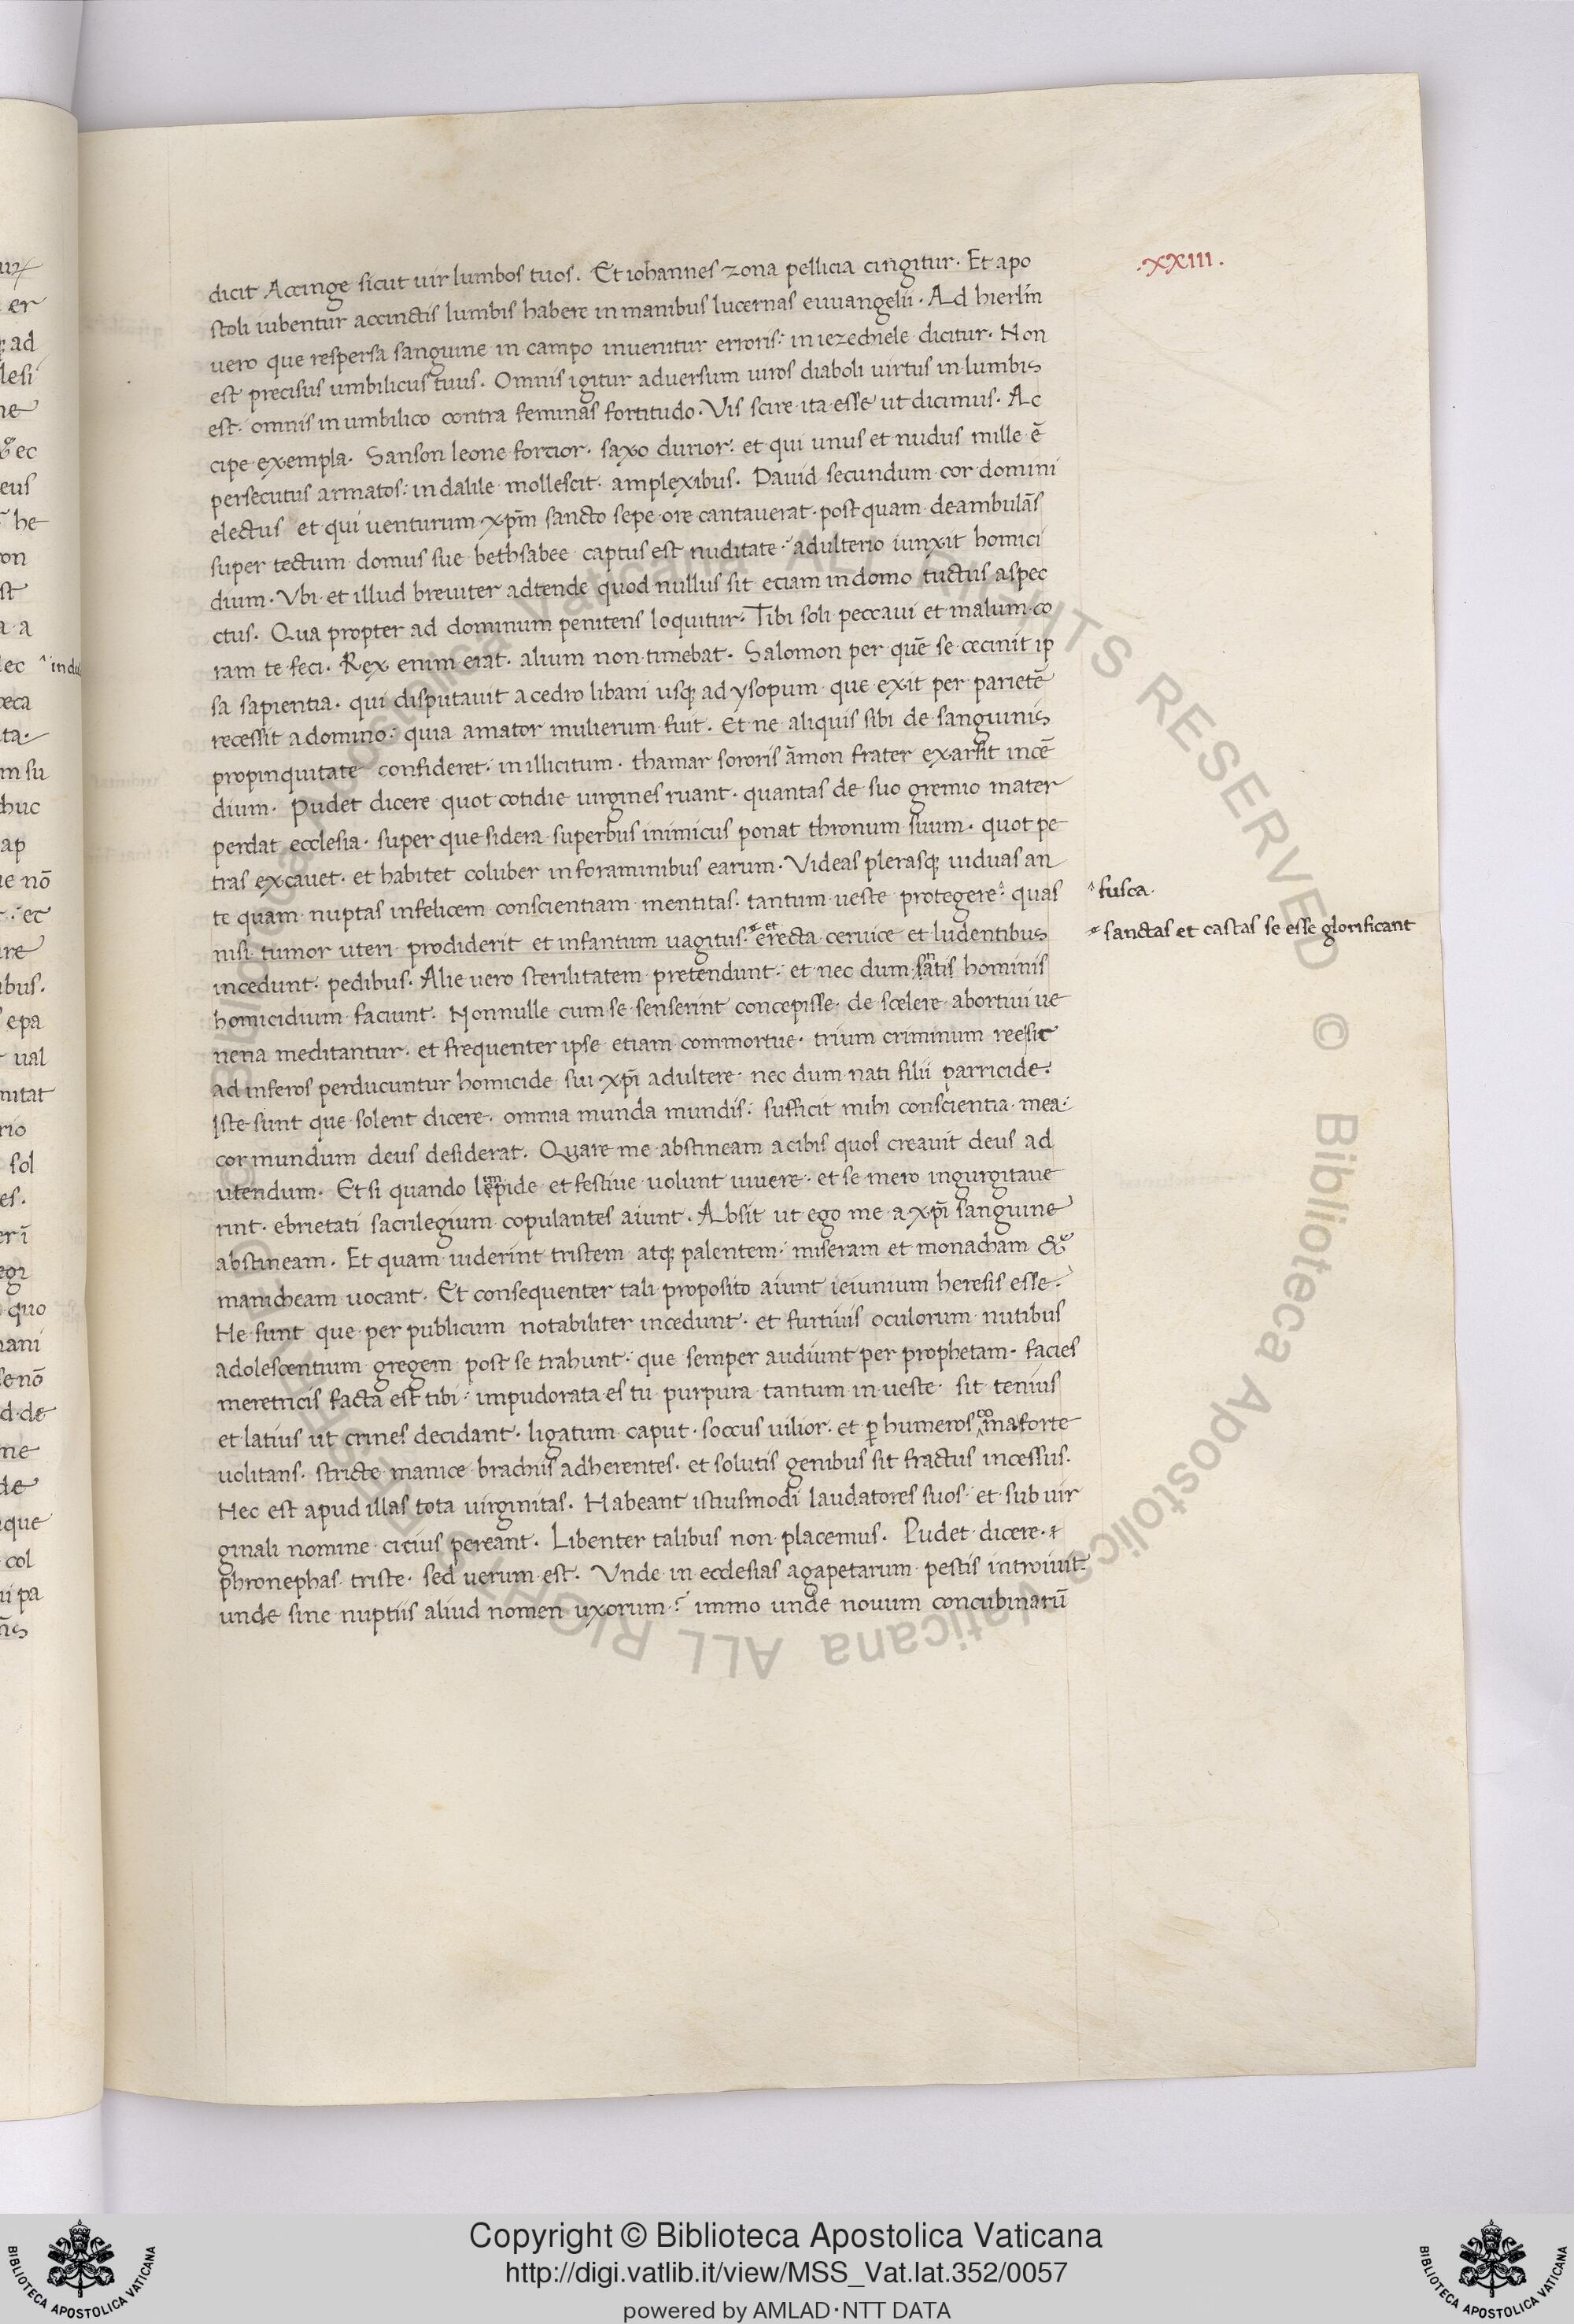 ·XXIII·
dicit Accinge sicut uir lumbos tuos. Et iohannes zona pellicia cingitur· Et apo
stoli iubentur accinctis lumbis habere in manibus lucernas euuangelii· Ad hierl̄m
uero que respersa sanguine in campo inuenitur erroris: in iezechiele dicitur· Non
est precisus umbilicus tuus. Omnis igitur aduersum uiros diaboli uirtus in lumbis
est: omnis in umbilico contra feminas fortitudo· Vis scire ita esse ut dicimus· Ac
cipe exempla. Sanson leone fortior· saxo durior: et qui unus et nudus mille ē
persecutus armatos: in dalile mollescit· amplexibus. Dauid secundum cor domini
electus et qui uenturum xp̄m sancto sepe ore cantauerat· post quam deambulās
super tectum domus sue bethsabee captus est nuditate: adulterio iunxit homici
dium· Vbi et illud breuiter adtende quod nullus sit eciam in domo tuctus aspec
ctus. Qua propter ad dominum penitens loquitur· Tibi soli peccaui et malum co
ram te feci. Rex enim erat· alium non timebat· Salomon per quē se cecinit ip
sa sapientia· qui disputauit a cedro libani usq; ad ysopum que exit per parietē
recessit a domino: quia amator mulierum fuit. Et ne aliquis sibi de sanguinis
propinquitate confideret: in illicitum· thamar sororis āmon frater exarsit incē
dium· Pudet dicere quot cotidie uirgines ruant· quantas de suo gremio mater
perdat ecclesia· super que sidera superbus inimicus ponat thronum suum· quot pe
tras excauet· et habitet coluber in foraminibus earum· Videas plerasq; uiduas an
te quam nuptas infelicem conscientiam mentitas· tantum ueste protegere:^ quas
^ fusca·
nisi tumor uteri prodiderit et infantum uagitus: et erecta ceruice et ludentibus
sanctas et castas se esse glorificant
incedunt· pedibus. Alie uero sterilitatem pretendunt: et nec dum sātis hominis
homicidium faciunt. Nonnulle cum se senserint concepisse· de scelere abortiui ue
nena meditantur· et frequenter ipse etiam commortue· trium criminum ree sic
ad inferos perducuntur homicide sui xp̄i adultere· nec dum nati filii parricide:
Iste sunt que solent dicere· omnia munda mundis: sufficit mihi conscientia mea:
cor mundum deus desiderat. Quare me abstineam a cibis quos creauit deus ad
utendum· Et si quando lepide et festiue uolunt uiuere· et se mero ingurgitaue
rint· ebrietati sacrilegium copulantes aiunt. Absit ut ego me a xp̄i sanguine
abstineam. Et quam uiderint tristem atq; palentem: miseram et monacham &
manicheam uocant. Et consequenter tali proposito aiunt ieiunium heresis esse:
He sunt que per publicum notabiliter incedunt· et furtiuis oculorum nutibus
adolescentium gregem post se trahunt: que semper audiunt per prophetam· facies
meretricis facta est tibi: impudorata es tu purpura tantum in ueste· sit tenius
et latius ut crines decidant· ligatum caput· soccus uilior· et p̱ humeros maforte
uolitans· stricte manice brachiis adherentes· et solutis genibus sit fractus incessus·
Hec est apud illas tota uirginitas. Habeant istiusmodi laudatores suos: et sub uir
ginali nomine cicius pereant. Libenter talibus non placemus. Pudet dicere·
phronephas triste· sed uerum est. Vnde in ecclesias agapetarum pestis introiuit·
unde sine nuptiis aliud nomen uxorum: immo unde nouum concubinarū
Copyright © Biblioteca Apostolica Vaticana
http://digi.vatlib.it/view/MSS_Vat.lat.352/0057
powered by AMLAD·NTT DATA